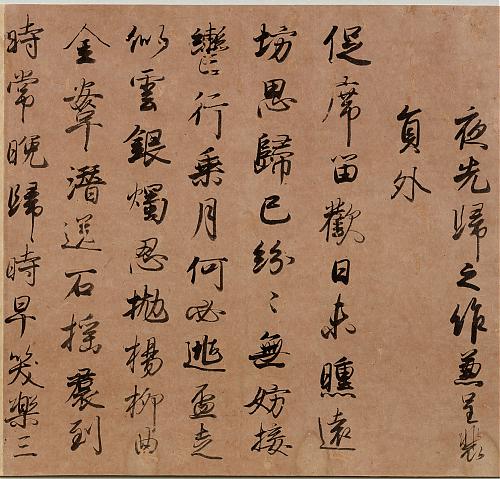 夜先歸之作兼呈裴
員外
促席留歡日未曛遠
坊思歸已紛〻無妨按
轡行乘月何必逃盃走
似雲銀燭忍拋楊柳曲
金鞍潛送石榴裠到
時常晚歸時早笑樂三